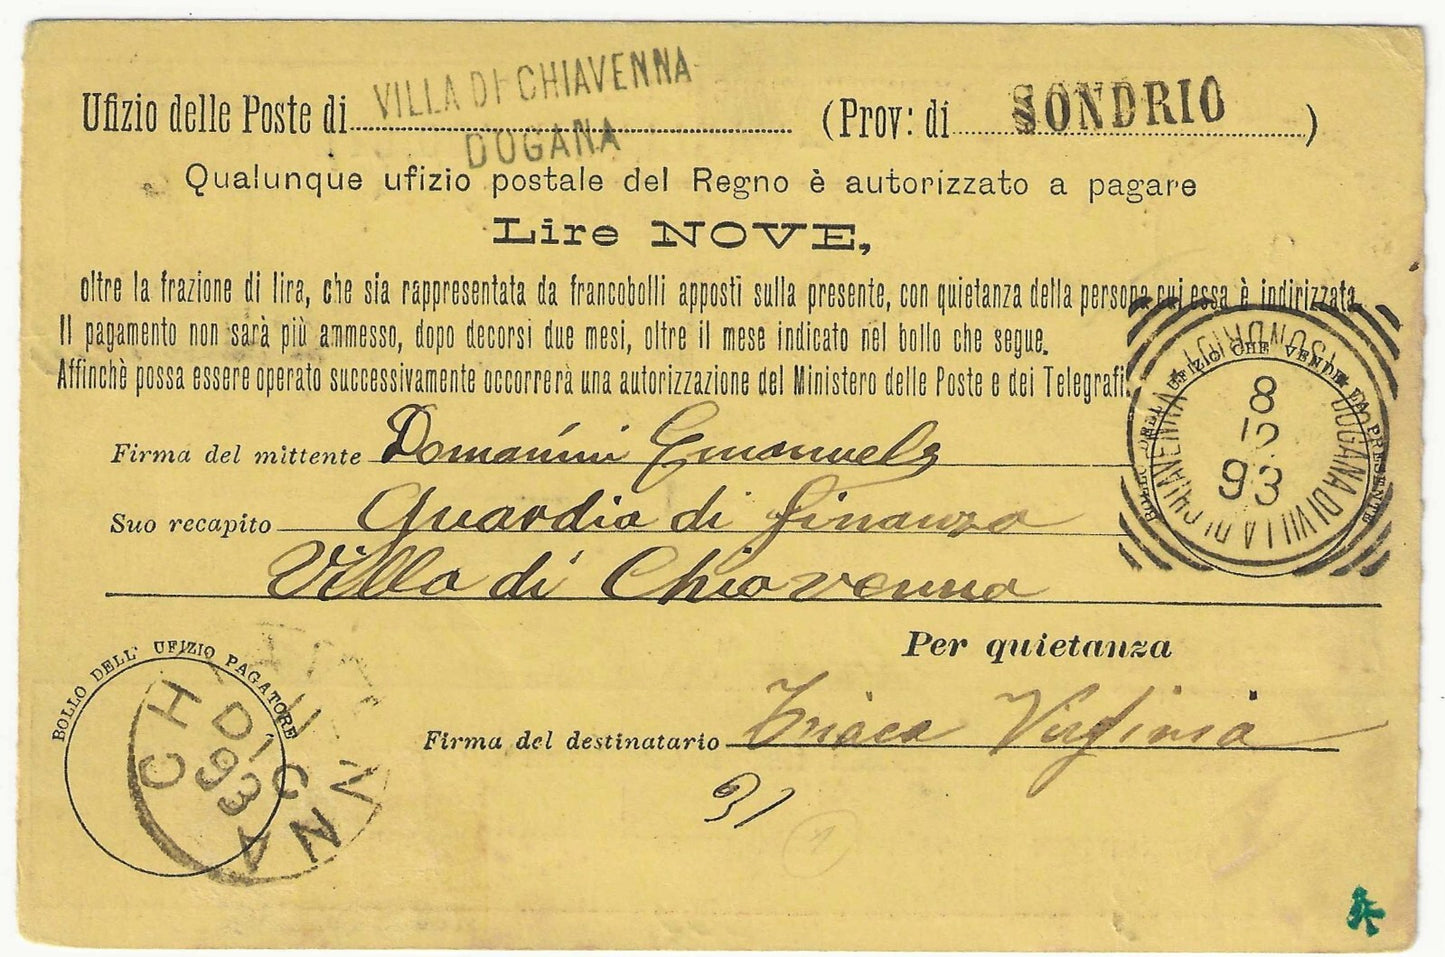 VILLA DI CHIAVENNA
DOGANA
Ufizio delle Poste di (Prov: di SONDRIO)
Qualunque ufizio postale del Regno è autorizzato a pagare
Lire NOVE,
oltre la frazione di lira, che sia rappresentata da francobolli apposti sulla presente, con quietanza della persona cui essa è indirizzata.
Il pagamento non sarà più ammesso, dopo decorsi due mesi, oltre il mese indicato nel bollo che segue.
Affinchè possa essere operato successivamente occorrerà una autorizzazione del Ministero delle Poste e dei Telegrafi.
BOLLO DELL' UFIZIO CHE VENDE LA PRESENTE
(SONDRIO)
DOGANA DI VILLA DI CHIAVENNA
8
12
93
Firma del mittente Domanini Emanuele
Suo recapito Guardia di finanza
Villa di Chiavenna
Per quietanza
BOLLO DELL' UFIZIO PAGATORE
DIC
93
Firma del destinatario Triaca Virginia
31